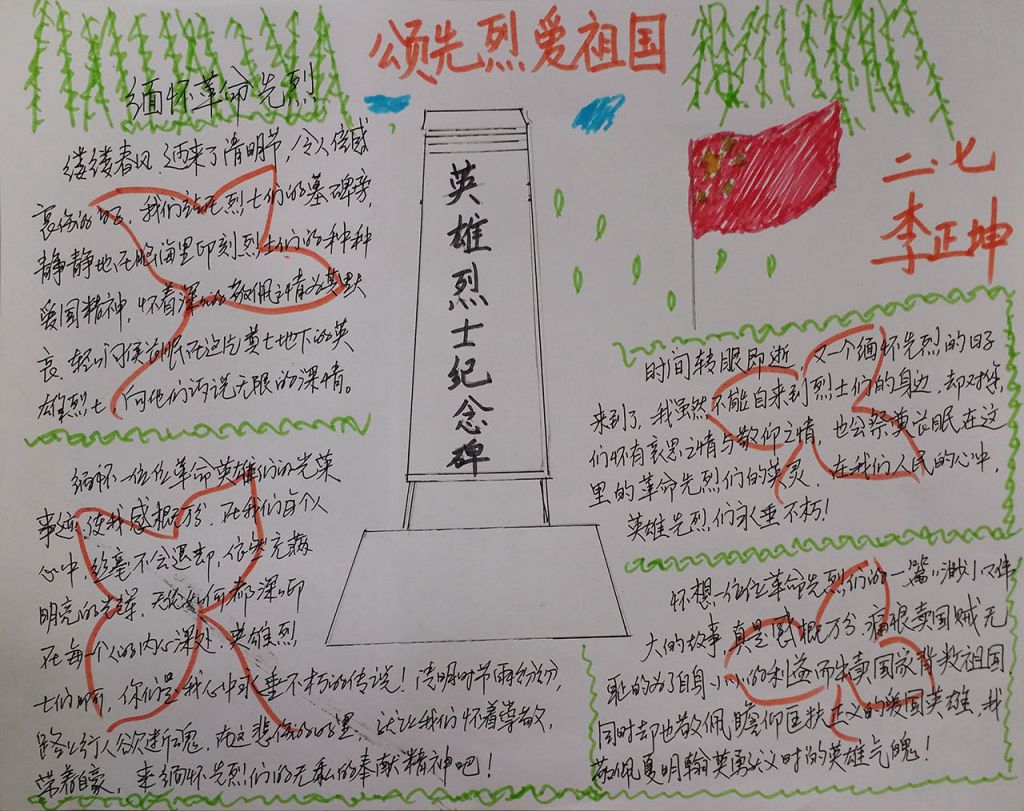 颂先烈爱祖国
二.七
李正坤
缅怀革命先烈
缕缕春风,迎来了清明节,令人倍感
哀伤的日子,我们站在烈士们的墓碑旁,
静静地在脑海里印刻烈士们的种种
爱国精神,怀着深深的敬佩之情为其默
哀,轻轻问候长眠在这片黄土地下的英
雄烈士,向他们诉说无限的深情。
缅怀一位位革命英雄们的光荣
事迹,使我感概万分,在我们每个人
心中,丝毫不会退却,依然充满
明亮的光辉,无论如何都深深印
在每一个人的内心深处,英雄烈
士们啊,你们是我心中永垂不朽的传说!清明时节雨纷纷,
路上行人欲断魂,在这悲伤的日子里,让让我们怀着尊敬,
带着自豪,来缅怀先烈们的无私的奉献精神吧!
英雄烈士纪念碑
时间转眼即逝,又一个缅怀先烈的日子
来到了,我虽然不能自来到烈士们的身边,却对
们怀有哀思之情与敬仰之情,也会祭奠长眠在这
里的革命先烈们的英灵,在我们人民的心中,
英雄先烈们永垂不朽!
怀想一位位革命先烈们的一篇篇渺小又伟
大的故事,真是感概万分,痛恨卖国贼无
耻的为了自身小小的利益而出卖国家背叛祖国,
同时却也敬佩瞻仰匡扶正义的爱国英雄,我
敬佩夏明翰英勇就义时的英雄气魄!